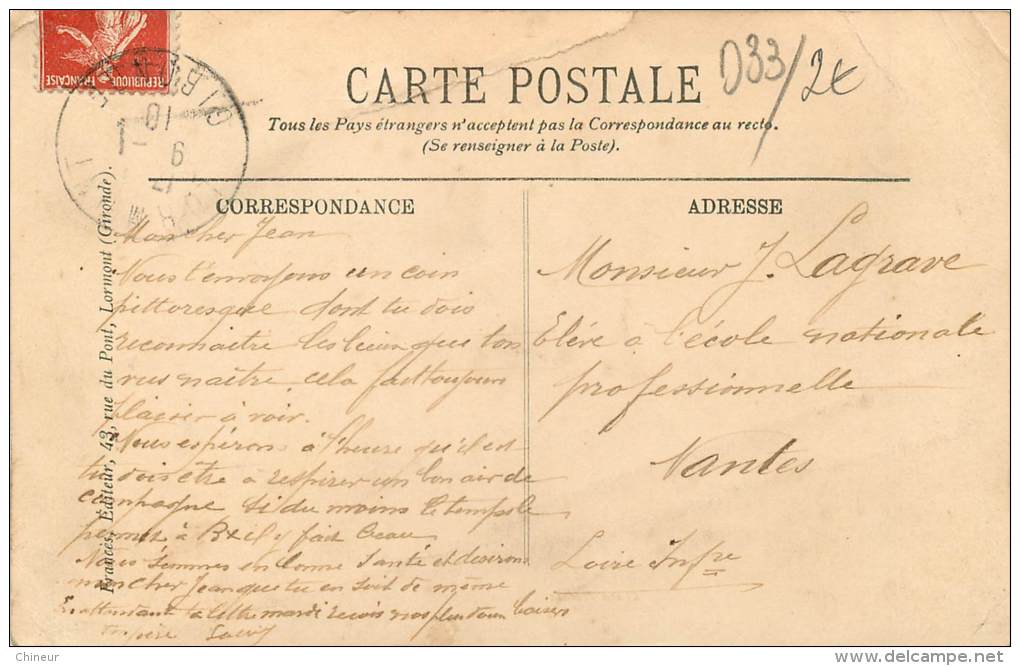 RÉPUBLIQUE FRANÇAISE
D33/2€
CARTE POSTALE
Tous les Pays étrangers n'acceptent pas la Correspondance au recto.
(Se renseigner à la Poste).
CORRESPONDANCE
Mon cher Jean
Nous t'envoyons un coin
pittoresque dont tu dois
reconnaitre les lieux que t'on
vus naître, cela fait toujours
plaisir à voir.
Nous espérons à l'heure qu'il est
tu dois être a respirer un bon air de
campagne si du moins le temps le
permet à Bx il y fait beau
Nous sommes en bonne santé et désirons
mon cher Jean que tu en soit de même
attendant a lettre mardi reçois nos plus doux baisers
ton père
ADRESSE
Monsieur J. Lagrave
Elève à l'école nationale
professionnelle
Nantes
Loire Infre
Frances, Éditeur, 43, rue du Pont, Lormont (Gironde).
Chineur
delcampe.net